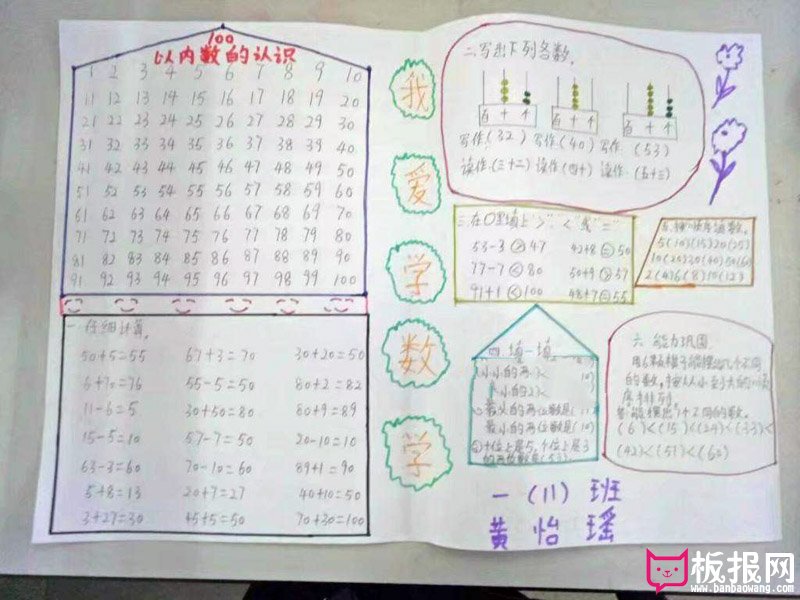 100
以内数的认识
1 2 3 4 5 6 7 8 9 10
11 12 13 14 15 16 17 18 19 20
21 22 23 24 25 26 27 28 29 30
31 32 33 34 35 36 37 38 39 40
41 42 43 44 45 46 47 48 49 50
51 52 53 54 55 56 57 58 59 60
61 62 63 64 65 66 67 68 69 70
71 72 73 74 75 76 77 78 79 80
81 82 83 84 85 86 87 88 89 90
91 92 93 94 95 96 97 98 99 100
一、仔细计算。
50+5=55 67+3=70 30+20=50
6+70=76 55-5=50 80+2=82
11-6=5 30+50=80 80+9=89
15-5=10 57-7=50 20-10=10
63-3=60 70-10=60 89+1=90
5+8=13 20+7=27 40+10=50
3+27=30 45+5=50 70+30=100
我
爱
学
数
学
二、写出下列各数。
百十个 百十个 百十个
写作:(32) 写作:(40) 写作:(53)
读作:(三十二) 读作:(四十) 读作:(五十三)
三、在○里填上">"、"<"或"="
53-3>47 42+8=50
77-7<80 50+9>57
91+1<100 48+7=55
5(10)(15)20(25)
10(20)30(40)50(60)
2(4)6(8)10(12)
四、填一填
最大的两位数是
最小的两位数是(10)
十位上是5,个位上是3
的两位数是(53)
六、能力巩固
用6颗珠子能摆出几个不同
的数,按从小到大的顺
序排列。
能摆出7个不同的数。
(6)<(15)<(24)<(33)<
(42)<(51)<(60)
一(11)班
黄怡瑶
板报网
www.banbaowang.com